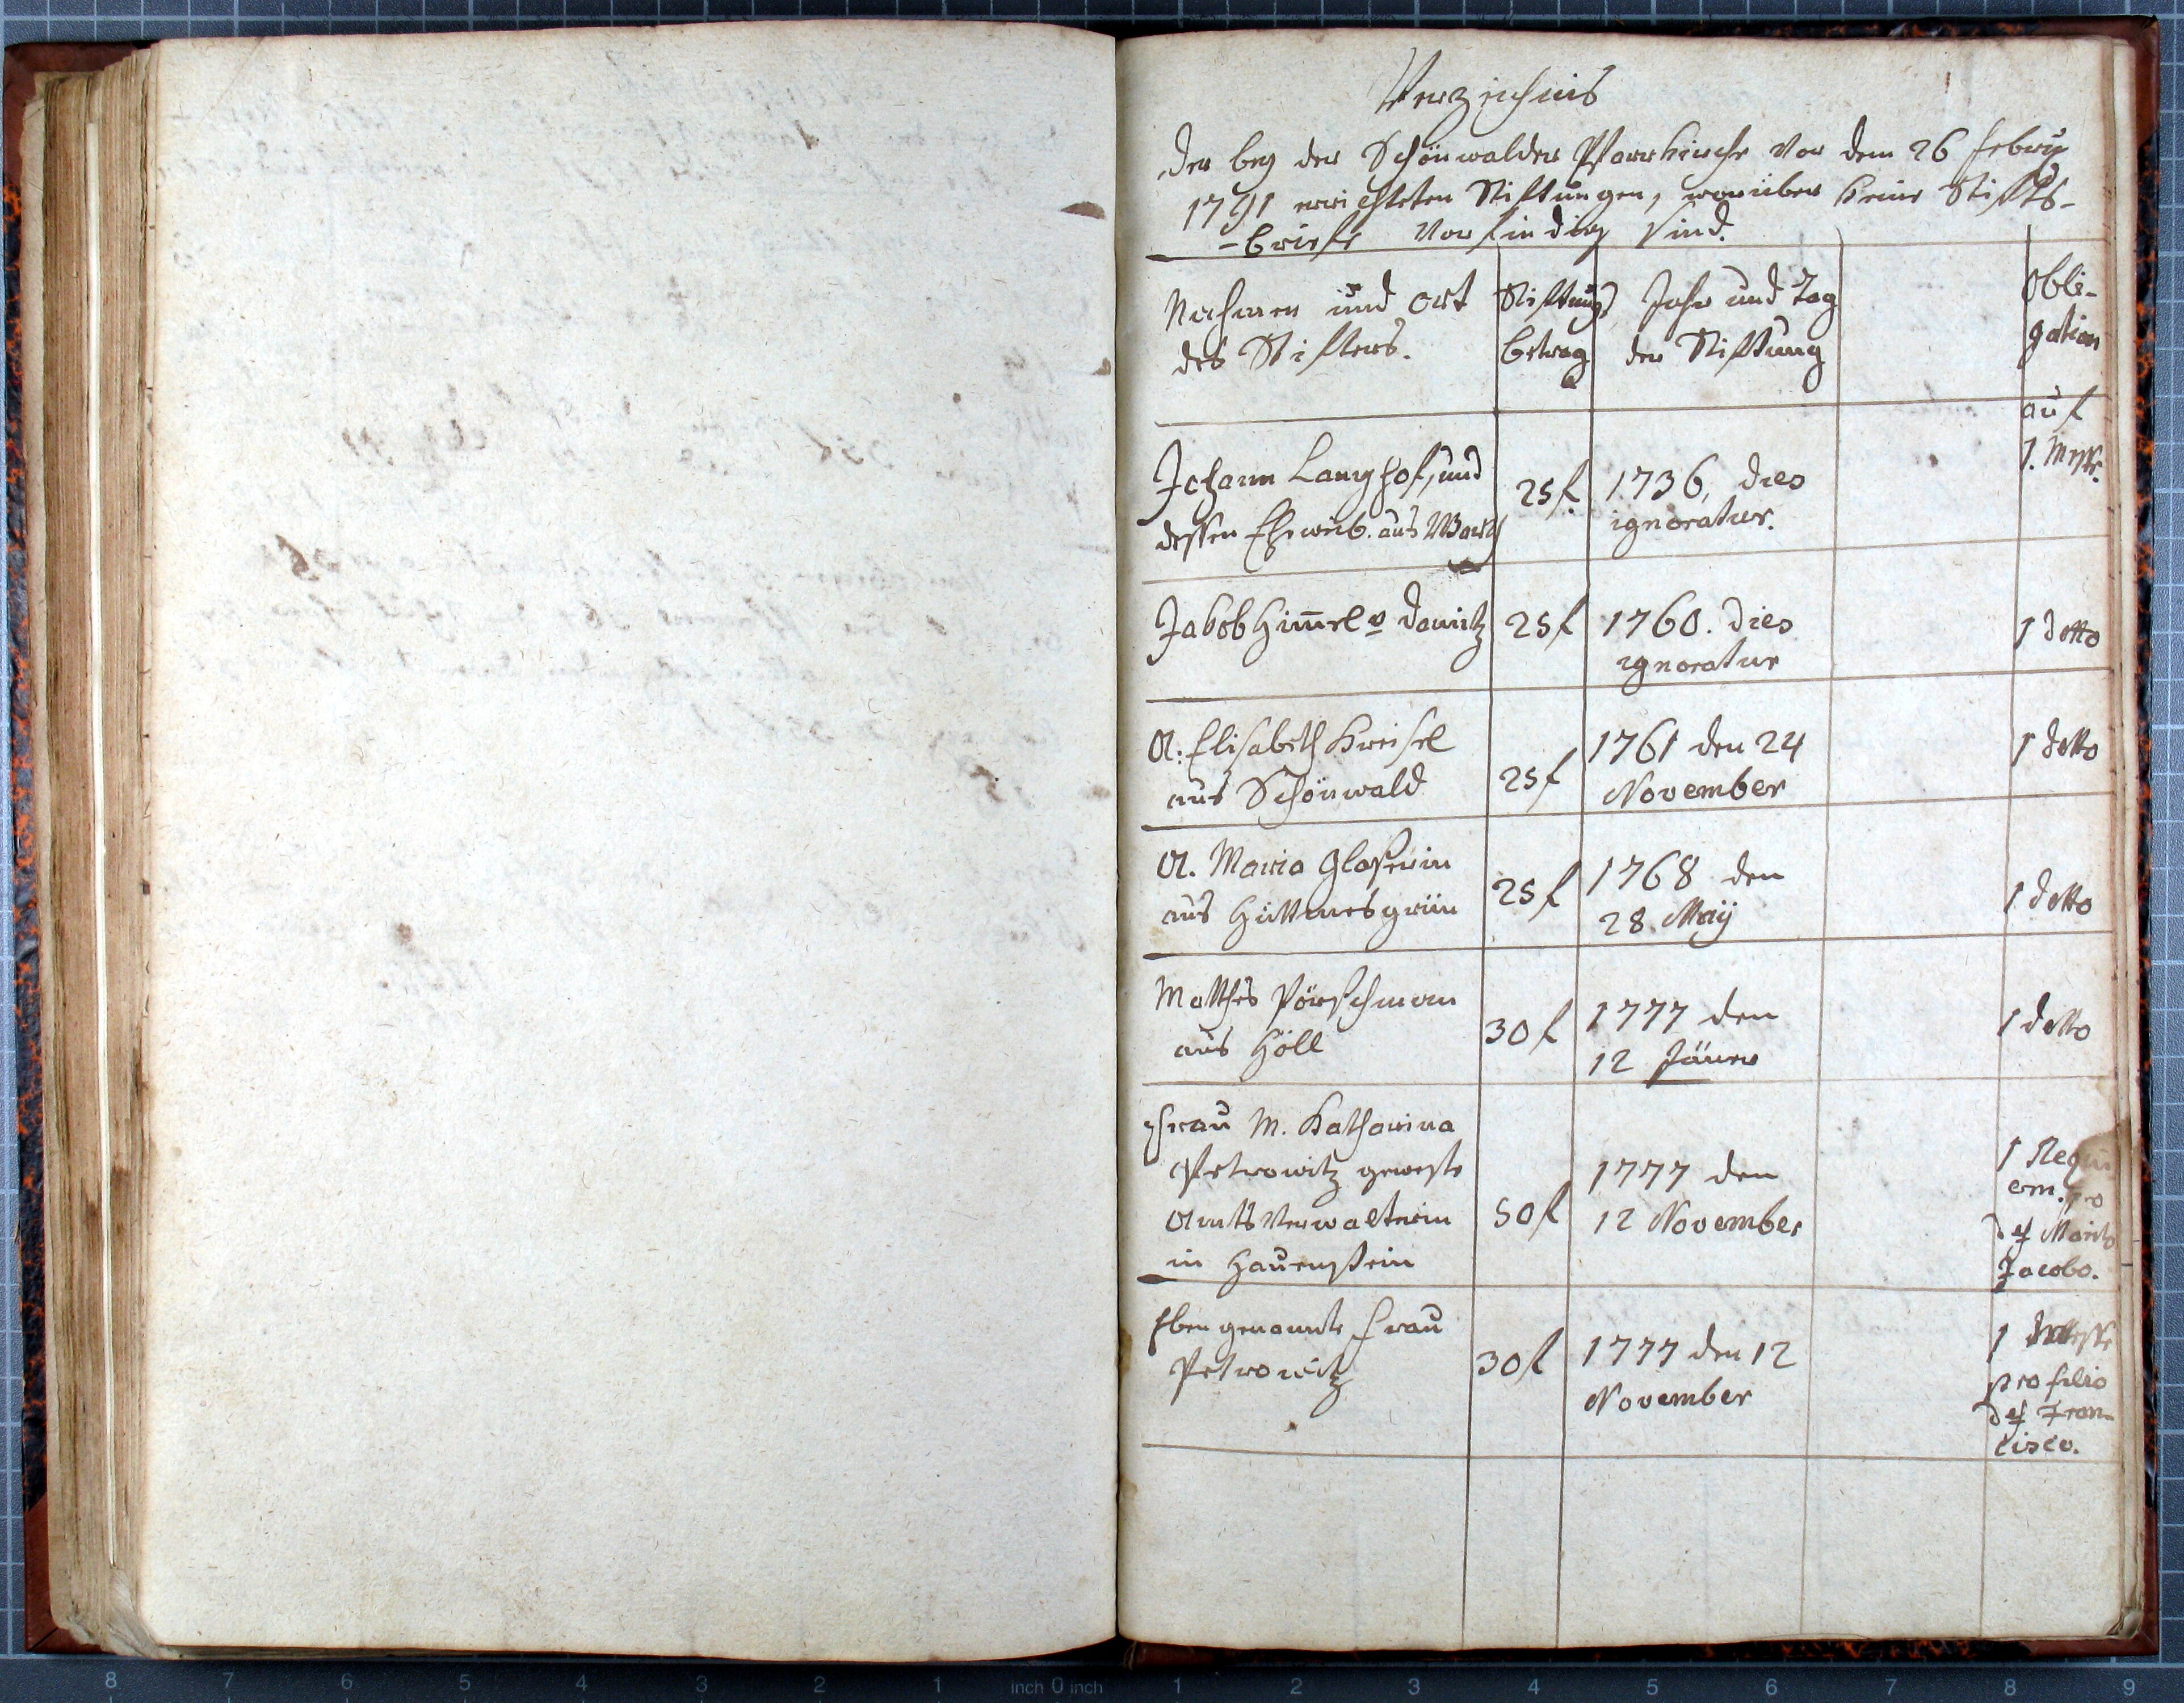 Verzeichnis
der bey der Schönwalder Pfarrkirche vor dem 26 febru
1791 errichteten Stiftungen, worüber keine Stifts-
-briefe vorfindig sind.
Nahmen und Ort
des Stifters.
Stiftungs
betrag
Jahr und Tag
der Stiftung
Obli-
gation
auf
Johann Langhof, und
dessen Eheweib. aus
25 f.
1736, dies
ignoratur.
1. Messe.
Jakob Him̄el v Damitz
25 f
1760. dies
ignoratur
1 detto
A: Elisabeth Kreisel
aus Schönwald
25 f
1761 den 24
November
1 detto
A. Maria Glaserin
aus Hüttmesgrün
25 f
1768 den
28. Maÿ
1 detto
Mathes Pörschman
aus Höll
30 f
1777 den
12 Jäner
1 detto
Frau M. Katharina
Petrowitz geweste
Amts Verwalterin
in Hauenstein
50 f
1777 den
12 November
1 Requi
em. pro
def Marito
Jacobo.
Eben genannte Frau
Petrowitz
30 f
1777 den 12
November
1 Messe
pro filio
def Fran-
cisco.
8 7 6 5 4 3 2 1 inch 0 inch 1 2 3 4 5 6 7 8 9